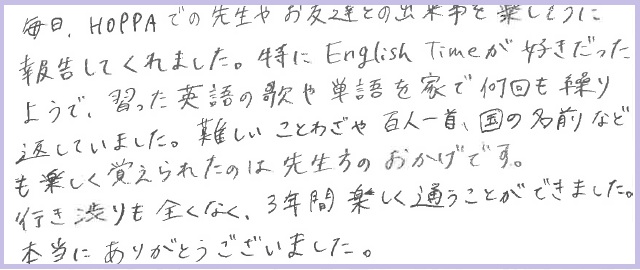 毎日、HOPPAでの先生やお友達との出来事を楽しそうに
報告してくれました。特にEnglish Timeが好きだった
ようで、習った英語の歌や単語を家で何回も繰り
返していました。難しいことわざや百人一首、国の名前など
も楽しく覚えられたのは先生方のおかげです。
行き渋りも全くなく、3年間楽しく通うことができました。
本当にありがとうございました。